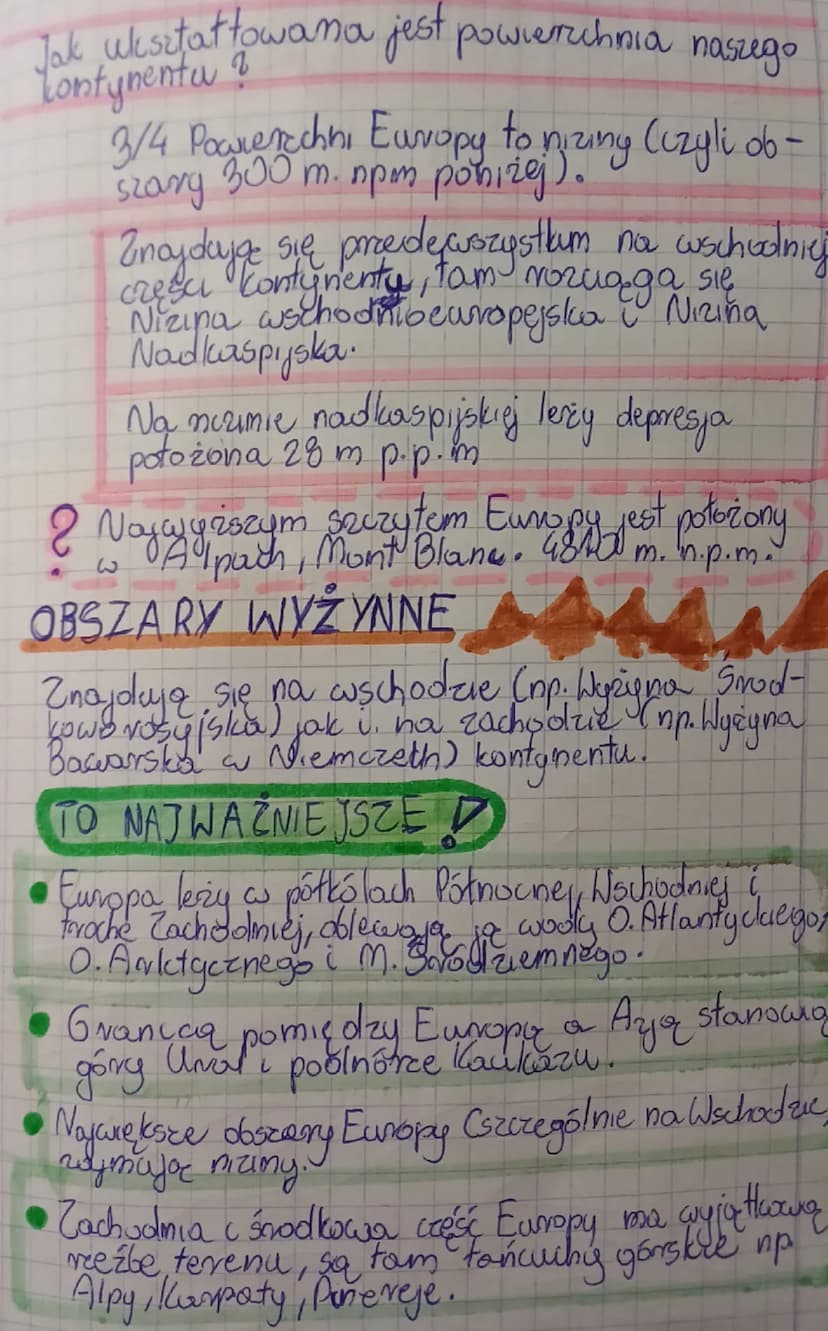 Jak ukształtowana jest powierzchnia naszego
kontynentu?
3/4 Powierzchni Europy to niziny (czyli ob-
szary 300 m. npm poniżej).
Znajdują się przedewszystkim na wschodniej
części kontynentu, tam rozciąga się
Nizina wschodnioeuropejska i Nizina
Nadkaspijska.
Na nizinie nadkaspijskiej leży depresja
położona 28 m p.p.m
? Najwyższym szczytem Europy jest położony
w Alpach, Mont Blanc. m. n.p.m.
OBSZARY WYŻYNNE
Znajdują się na wschodzie (np. Wyżyna Środ-
kowo rosyjska) jak i na zachodzie (np. Wyżyna
Bawarska w Niemczech) kontynentu.
TO NAJWAŻNIEJSZE!
• Europa leży w półkolach Północnej, Wschodniej i
trochę Zachodniej, oblewają ją wody O. Atlantyckiego,
O. Arktycznego i M. Śródziemnego.
• Granicą pomiędzy Europą a Azją stanowią
góry Ural i podnóże Kaukazu.
• Największe obszary Europy (szczególnie na Wschodzie,
zajmując niziny.
• Zachodnia i środkowa część Europy ma wyjątkową
rzeźbe terenu, są tam łańcuchy górskie np
Alpy, Karpaty, Pireneje.